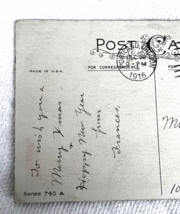 POST CA
FOR CORRESPONDENCE
MADE IN U.S.A.
1916
To wish you a
Merry Xmas +
Happy New Year
from
Frances.
Series 740 A